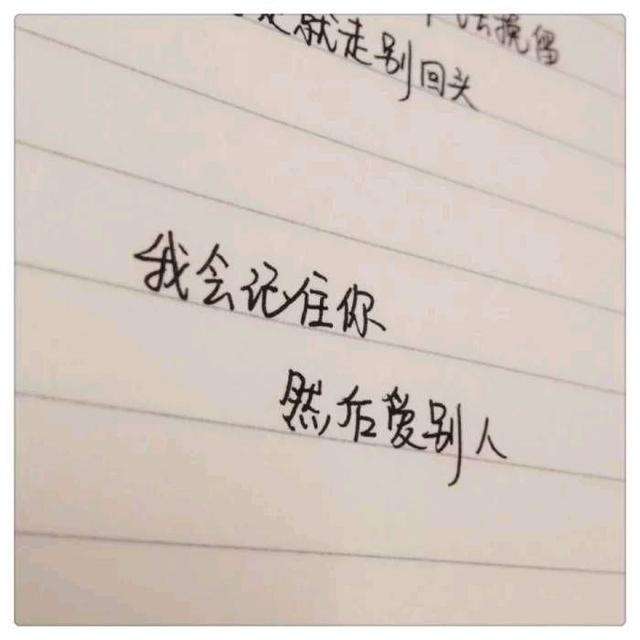 去挽留
就走别回头
我会记住你
然后爱别人